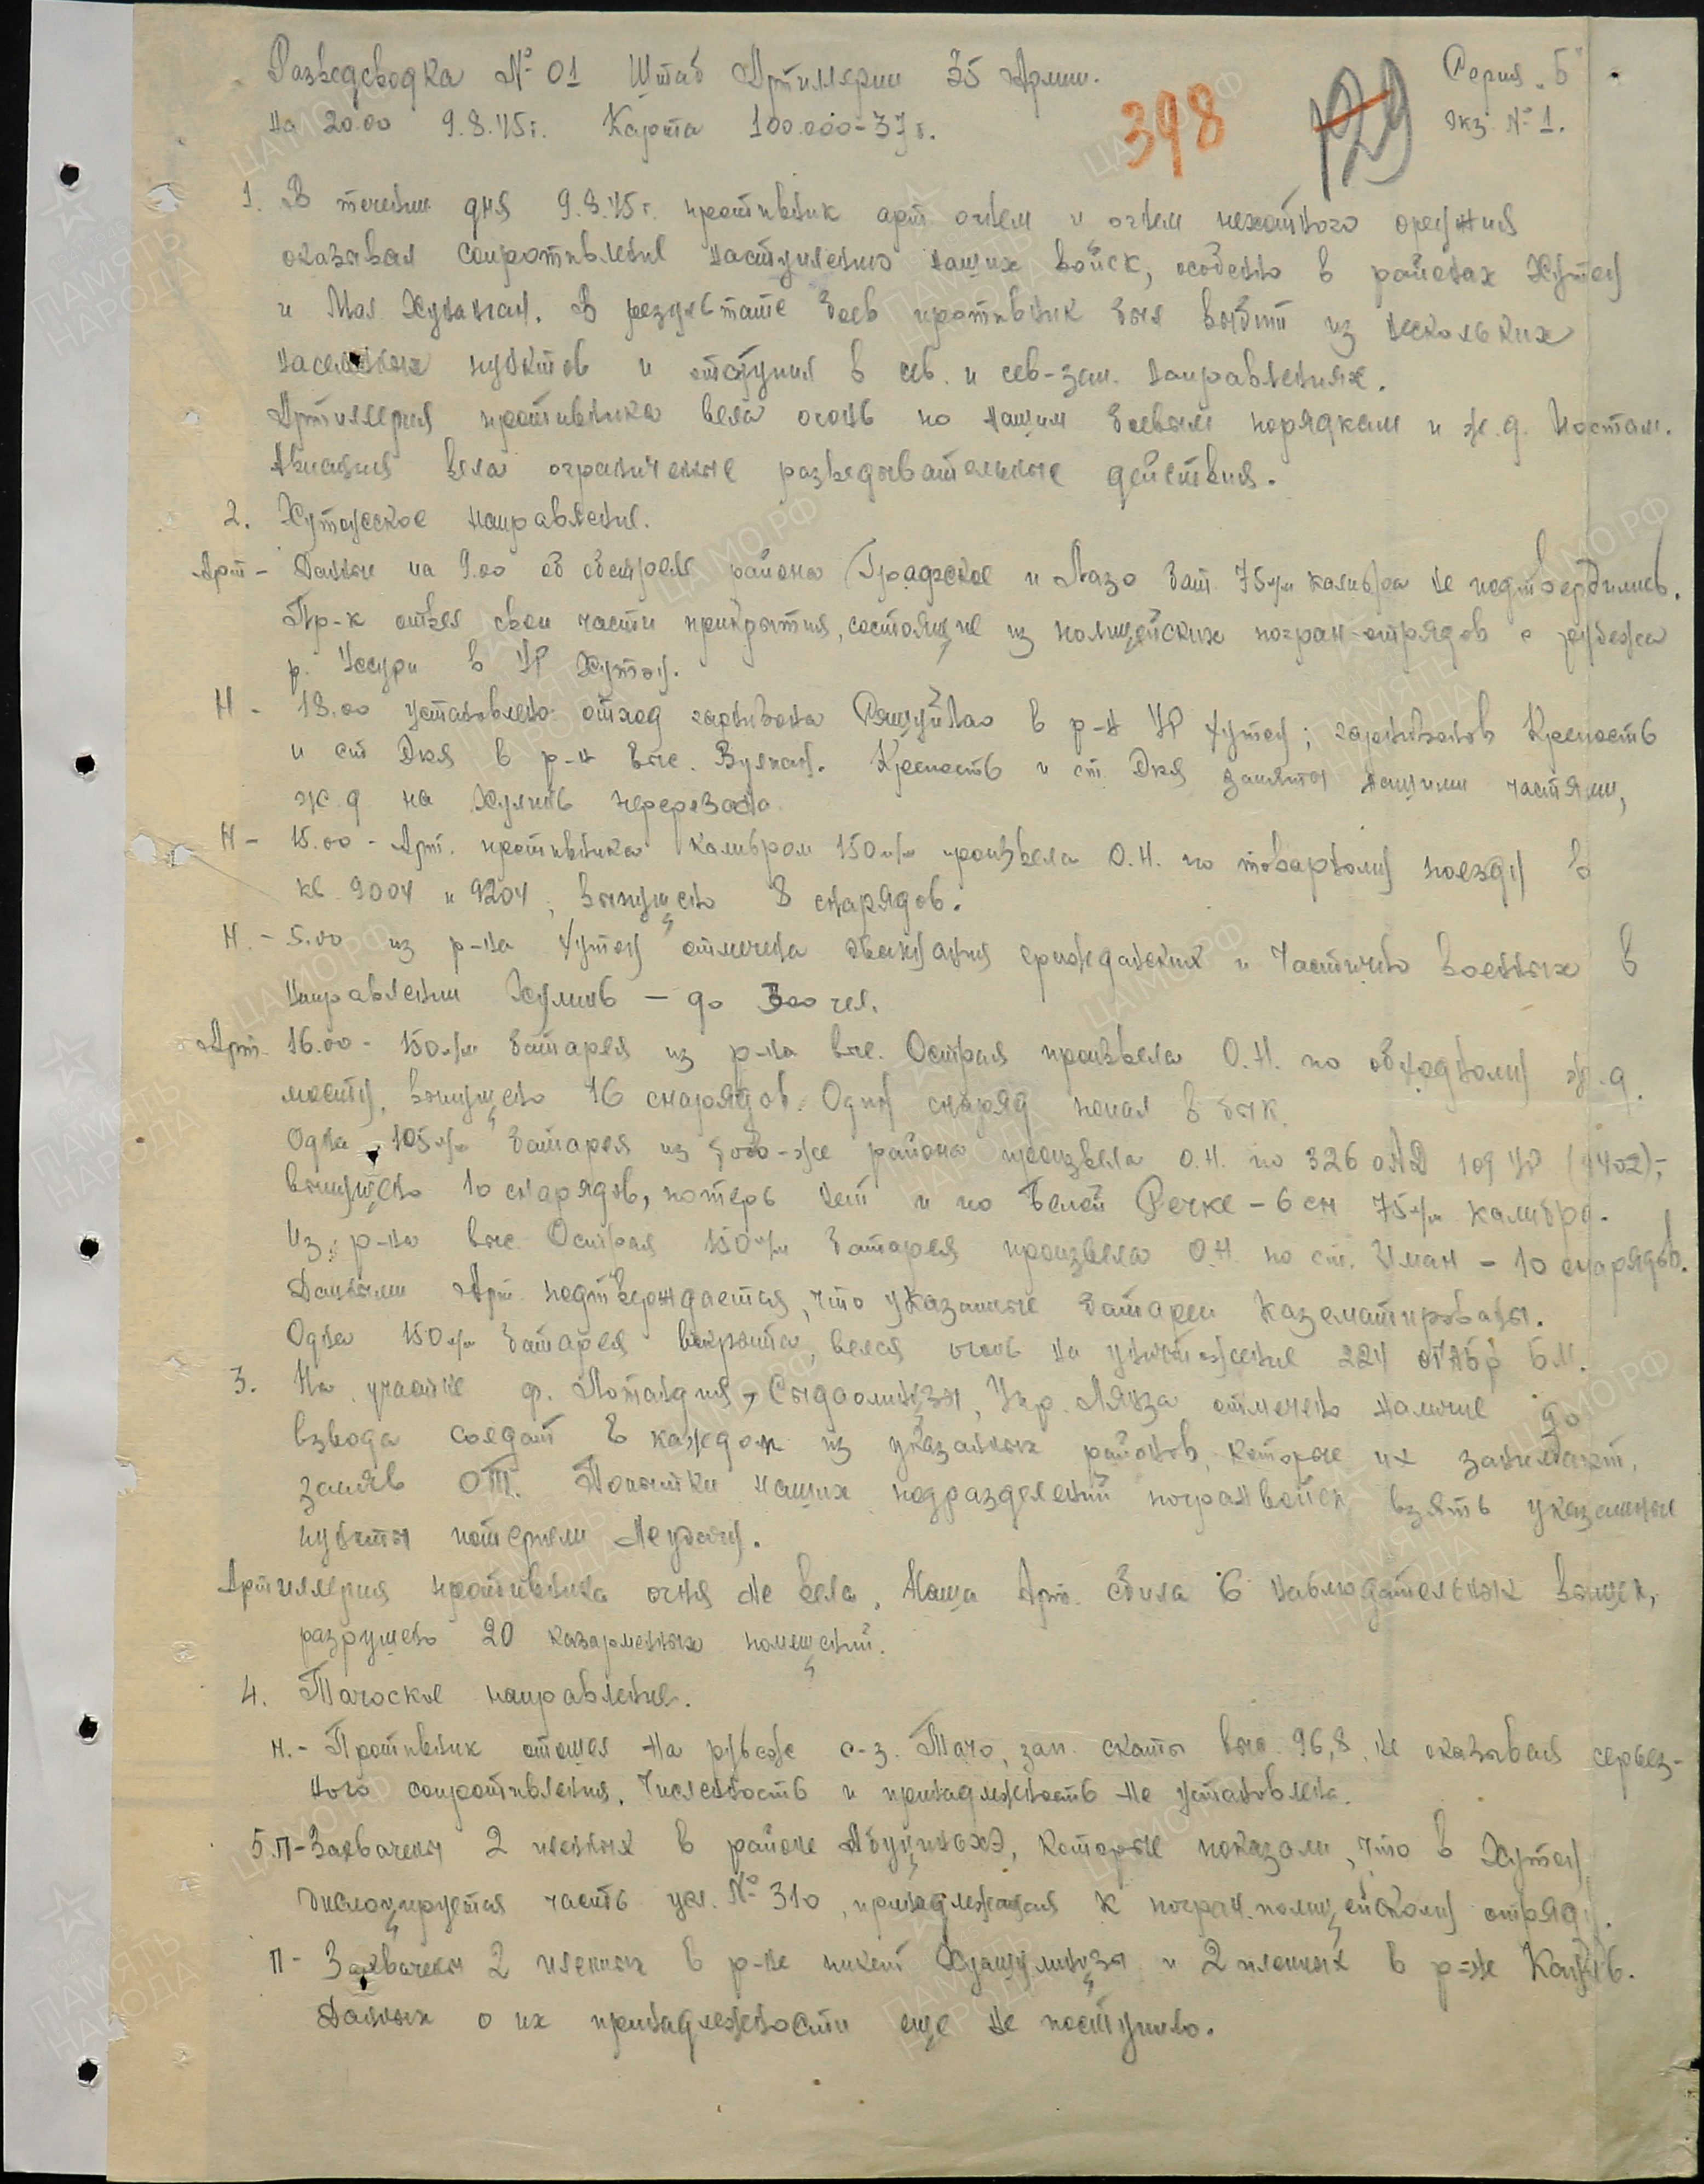 Разведсводка № 01 Штаб Артиллерии 35 Армии.
Серия "Б"
На 20.00 9.8.45г. Карта 100.000-37г.
экз № 1.
398
129
1. В течении дня 9.8.45г. противник арт огнем и огнем пехотного оружия
оказывал сопротивление наступлению наших войск, особенно в районах Хутоу
и Мал. Хуанган. В результате боев противник был выбит из нескольких
населенных пунктов и отступил в сев. и сев-зап. направлениях.
Артиллерия противника вела огонь по нашим боевым порядкам и ж.д. мостам.
Авиация вела ограниченные разведывательные действия.
2. Хутоуское направление.
Арт - Данные на 9.00 об обстреле района Графское и Лазо бат 75м/м калибра не подтвердились.
Пр-к отвел свои части прикрытия, состоящие из полицейских погран-отрядов с рубежа
р. Уссури в УР Хутоу.
Н - 18.00 установлено отход гарнизона в р-н УР Хутоу; гарнизонов Крепость
и ст Дня в р-н выс. Вулкан. Крепость и ст. Дня заняты нашими частями,
ж.д на Хулинь перерезана.
Н - 15.00 - Арт. противника калибром 150м/м произвела О.Н. по товарному поезду в
кв. 9004 и 9204, выпущено 8 снарядов.
Н. - 5.00 из р-на Хутоу отмечена эвакуация гражданских и частично военных в
направлении Хулинь - до чел.
Арт. 16.00 - 150м/м батарея из р-на выс. Острая произвела О.Н. по обходному ж.д.
мосту, выпущено 16 снарядов. Один снаряд попал в бык.
Одна 105м/м батарея из того-же района произвела О.Н. по 326 ОАД 109 УР (4402);
выпущено 10 снарядов, потерь нет и по Белой Речке - 6 сн 75м/м калибра.
Из р-на выс Острая 150м/м батарея произвела О.Н. по ст. Иман - 10 снарядов.
Данными Арт. подтверждается, что указанные батареи казематированы.
Одна 150м/м батарея вскрыта, вела огонь на уничтожение 224 ОГАБр Б.М.
3. На участке ф. Лотандия, Сындаолинцзы, Укр. Лянза отмечено наличие до
взвода солдат в каждом из указанных районов, которые их занимают,
заняв ОТ. Попытки наших подразделений погранвойск взять указанные
пункты потерпели неудачу.
Артиллерия противника огня не вела. Наша Арт. сбила 6 наблюдательных вышек,
разрушено 20 казарменных помещений.
4. Тачоское направление.
Н. - Противник отошел на рубеже с-з. Тачо, зап. скаты выс. 96,8, не оказывая серьез-
ного сопротивления. Численность и принадлежность не установлена.
5. П - Захвачены 2 пленных в районе, которые показали, что в Хутоу
дислоцируется часть усл. № 310, принадлежащая к погран. полицейскому отряду.
П - Захвачены 2 пленных в р-не пикет и 2 пленных в р-не
Данных о их принадлежности еще не поступило.
ПАМЯТЬ НАРОДА
ЦАМО.РФ